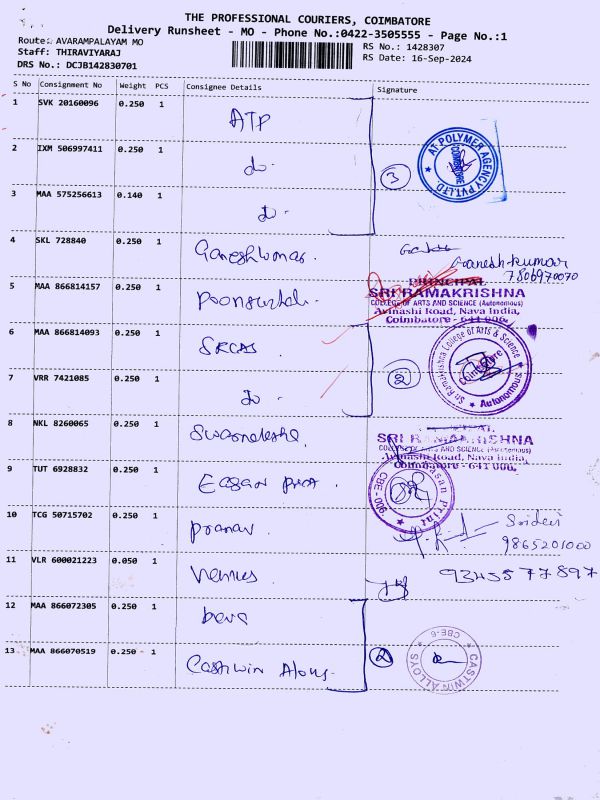 THE PROFESSIONAL COURIERS, COIMBATORE
Delivery Runsheet - MO - Phone No.:0422-3505555 - Page No.:1
Route: AVARAMPALAYAM MO
RS No.: 1428307
Staff: THIRAVIYARAJ
RS Date: 16-Sep-2024
DRS No.: DCJB142830701
S No Consignment No Weight PCS Consignee Details Signature
1 SVK 20160096 0.250 1 ATP
2 IXM 506997411 0.250 1 do.
3 MAA 575256613 0.140 1 do.
3
AT POLYMER AGENCY PVT LTD
COIMBATORE
4 SKL 728840 0.250 1
Ganeshkumar
7806970070
5 MAA 866814157 0.250 1
PRINCIPAL
SRI RAMAKRISHNA
COLLEGE OF ARTS AND SCIENCE (Autonomous)
Avinashi Road, Nava India,
Coimbatore - 641 006.
6 MAA 866814093 0.250 1 SRCAS
7 VRR 7421085 0.250 1 do.
2
Sri Ramakrishna College of Arts & Science
Coimbatore
Autonomous
8 NKL 8260065 0.250 1
SRI RAMAKRISHNA
COLLEGE OF ARTS AND SCIENCE (Autonomous)
Avinashi Road, Nava India,
Coimbatore - 641 006.
9 TUT 6928832 0.250 1
10 TCG 50715702 0.250 1 pranav
Sridevi
9865201000
11 VLR 600021223 0.050 1
9345577897
12 MAA 866072305 0.250 1
13 MAA 866070519 0.250 1 Castwin Alloys.
2
CASTWIN ALLOYS
CBE-6